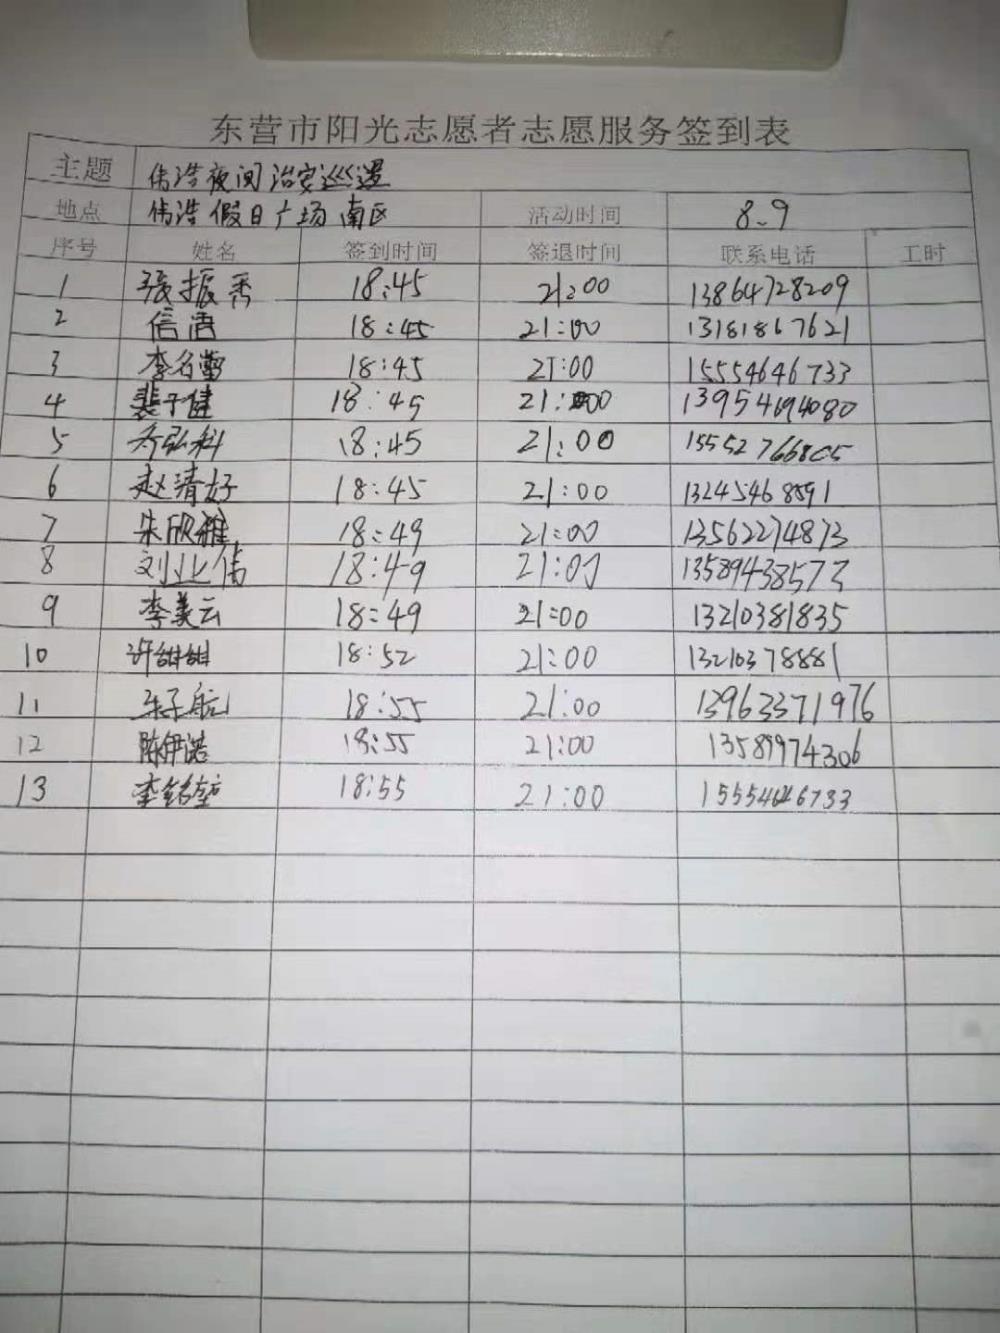 东营市阳光志愿者志愿服务签到表
主题 伟浩夜间治安巡逻
地点 伟浩假日广场南区 活动时间 8.9
序号 姓名 签到时间 签退时间 联系电话 工时
1 张振秀 18:45 21:00 13864728209
2 信浩 18:45 21:00 13181867621
3 李名 18:45 21:00 15554646733
4 裴子健 18:45 21:00 13954694080
5 乔弘科 18:45 21:00 15552766805
6 赵清好 18:45 21:00 13245468591
7 朱欣雅 18:49 21:00 13562274873
8 刘业伟 18:49 21:00 13589438573
9 李美云 18:49 21:00 13210381835
10 许甜甜 18:52 21:00 13210378881
11 朱子航 18:55 21:00 13963371976
12 陈伊诺 18:55 21:00 13589974306
13 李铭堃 18:55 21:00 15554646733